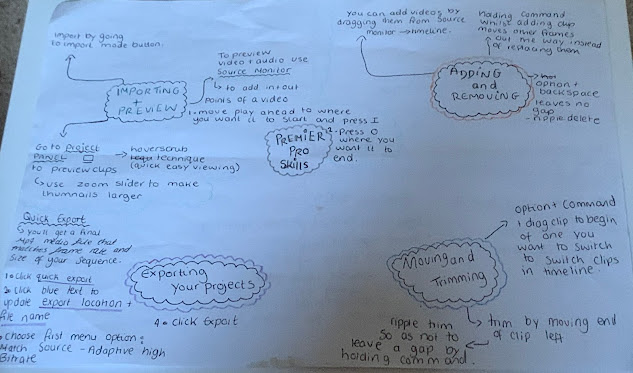 import by going
to import mode button.
IMPORTING
+
PREVIEW
To preview
video + audio use
Source Monitor
→ to add in+out
points of a video
1. move play ahead to where
you want it to start and press I
2. Press O
where you
want it to
end.
Go to Project
PANEL
to preview clips
→ hoverscrub
technique
(quick easy viewing)
↳ use zoom slider to make
thumnails larger
PREMIER
PRO
Skills
you can add videos by
dragging them from Source
monitor → timeline.
Holding command
whilst adding clip
moves other frames
out the way instead
of replacing them
ADDING
and
REMOVING
option +
backspace
leaves no
gap
- ripple delete
Quick Export
↳ you'll get a final
mp4 media file that
matches frame rate and
size of your sequence.
1. Click quick export
2. Click blue text to
update export location +
file name
choose first menu option:
Match Source - Adaptive high
Bitrate
4. Click Export
Exporting
your projects
Moving and
Trimming
option + Command
+ drag clip to begin
of one you
want to switch
to switch clips
in timeline.
→ trim by moving end
of clip left
ripple trim
so as not to
leave a gap by
holding command.